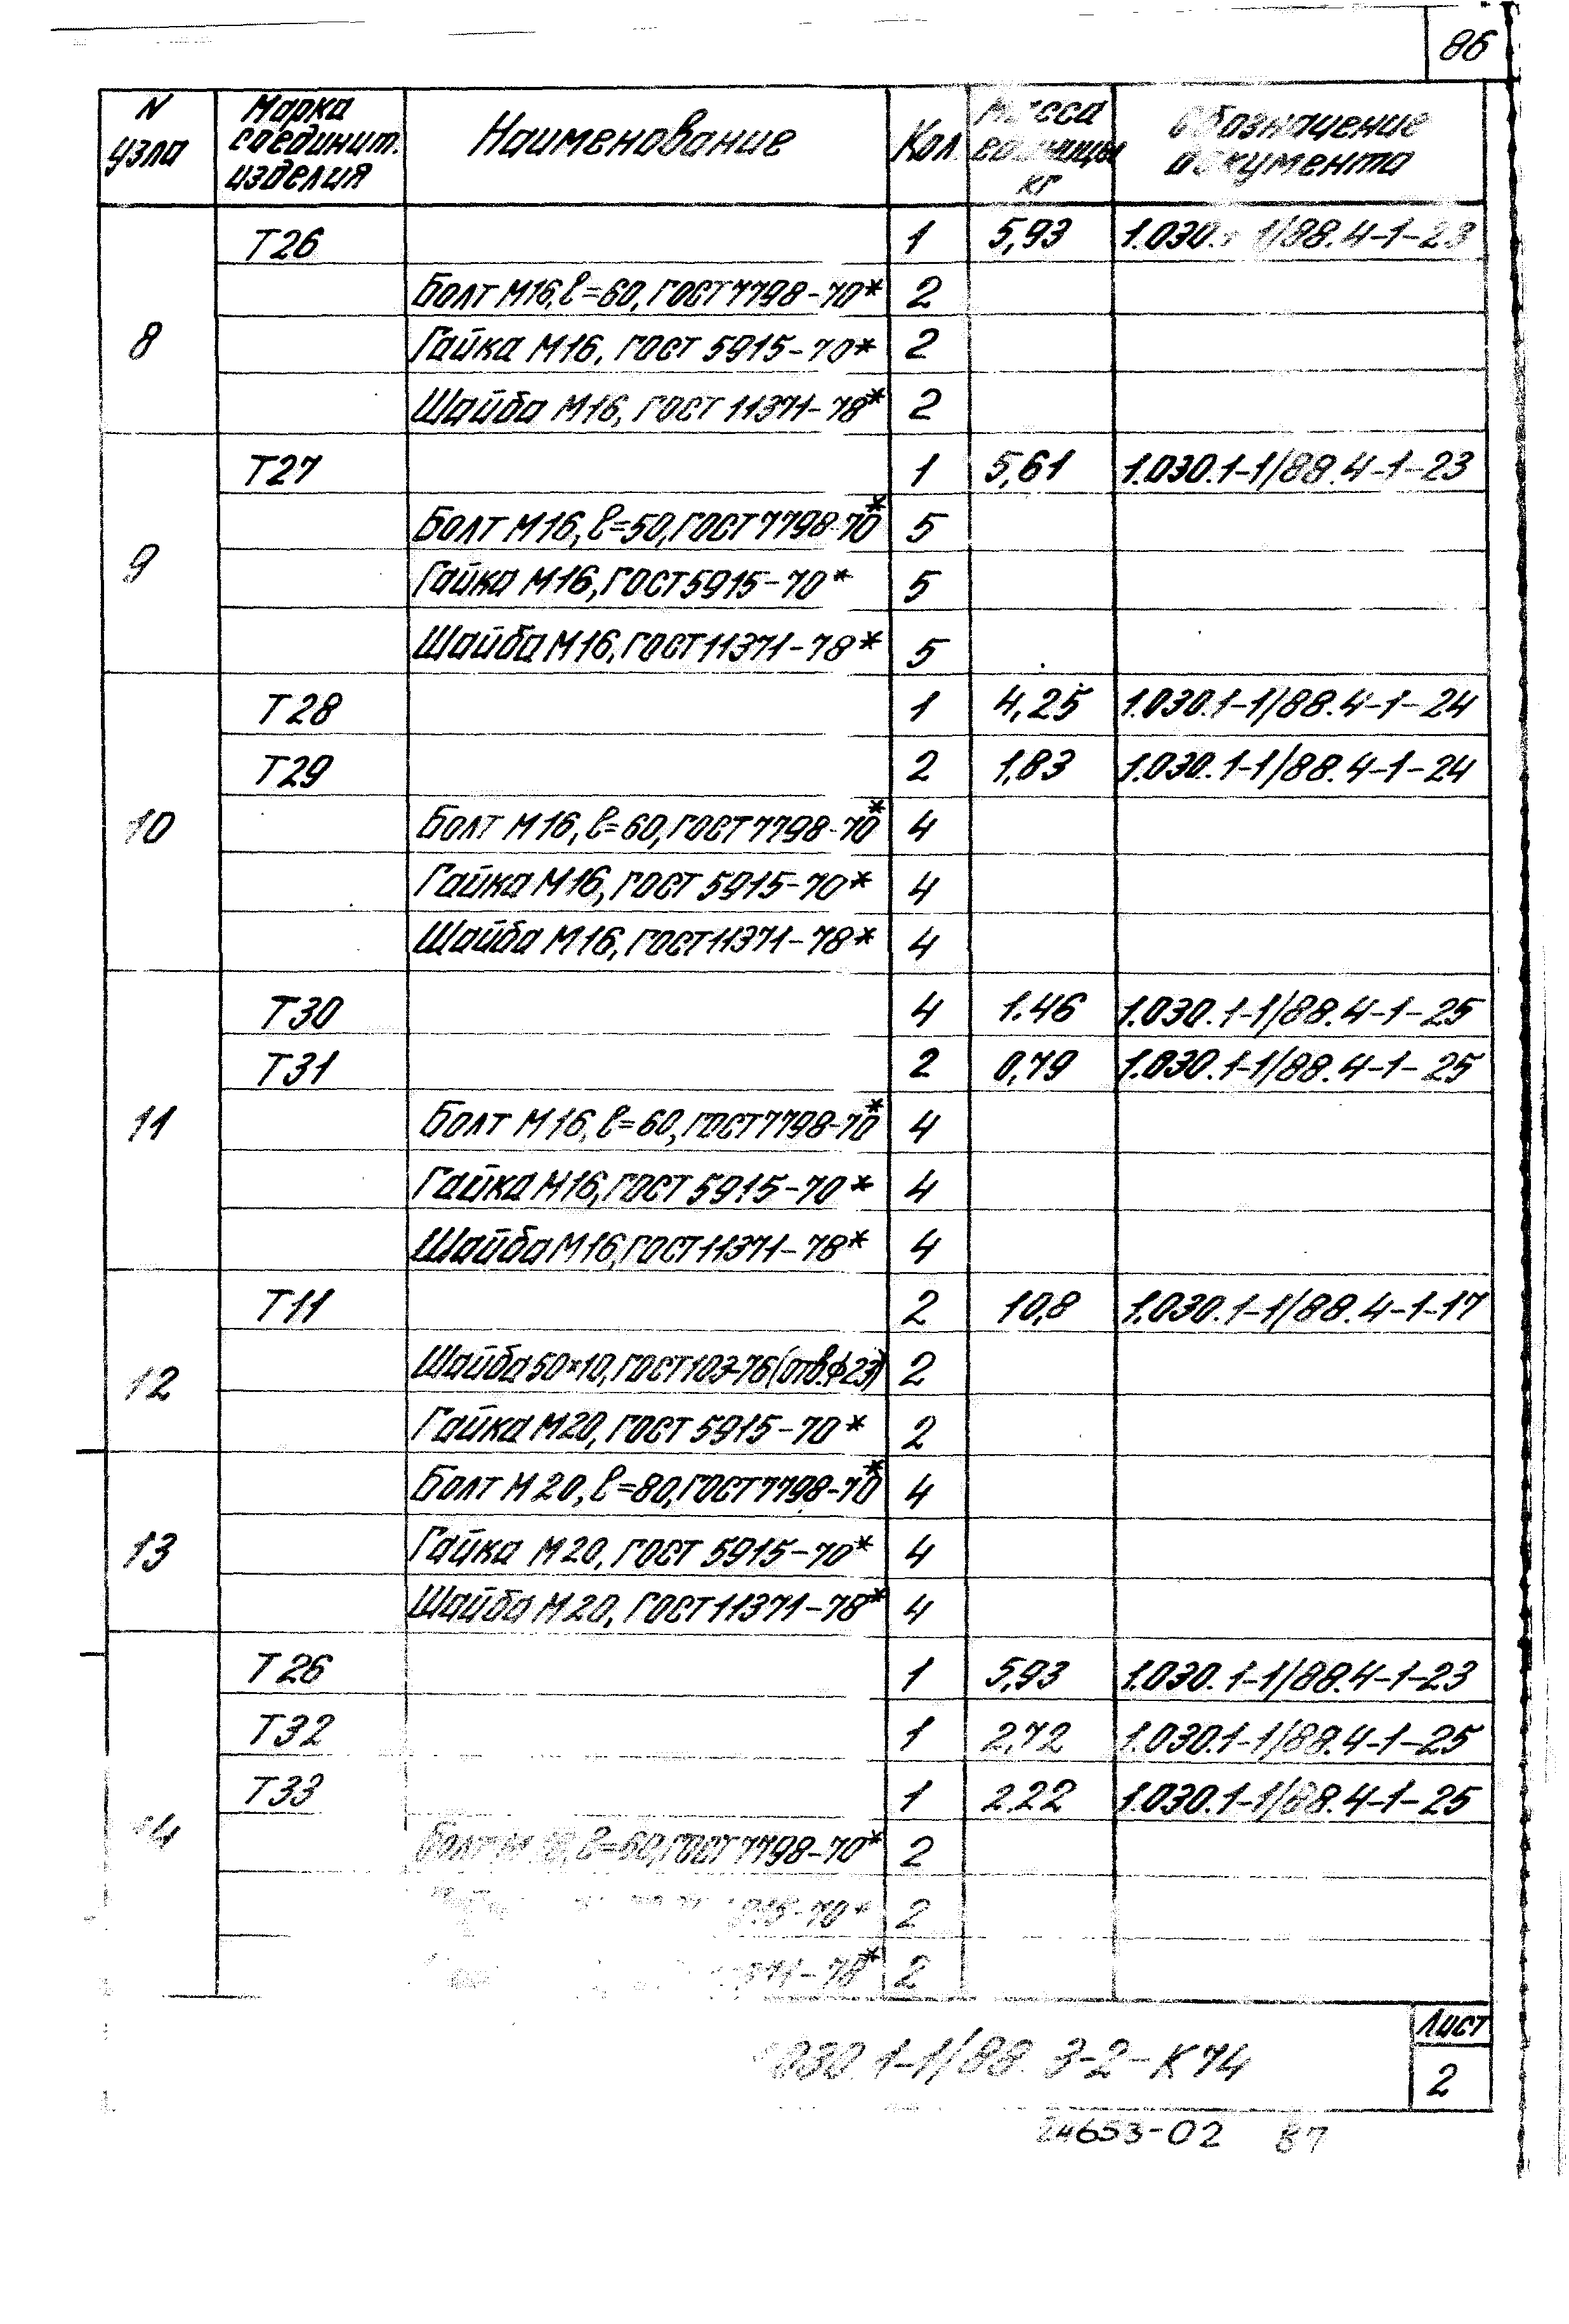 86
N узла Марка соединит. изделия Наименование Кол. Масса единицы кг Обозначение документа
8
Т26 1 5,93 1.030. 1/88.4-1-23
Болт М16, ℓ=60, ГОСТ 7798-70* 2
Гайка М16, ГОСТ 5915-70* 2
Шайба М16, ГОСТ 11371-78* 2
9
Т27 1 5,61 1.030.1-1/88.4-1-23
Болт М16, ℓ=50, ГОСТ 7798-70* 5
Гайка М16, ГОСТ 5915-70* 5
Шайба М16, ГОСТ 11371-78* 5
10
Т28 1 4,25 1.030.1-1/88.4-1-24
Т29 2 1,83 1.030.1-1/88.4-1-24
Болт М16, ℓ=60, ГОСТ 7798-70* 4
Гайка М16, ГОСТ 5915-70* 4
Шайба М16, ГОСТ 11371-78* 4
11
Т30 4 1.46 1.030.1-1/88.4-1-25
Т31 2 0,79 1.030.1-1/88.4-1-25
Болт М16, ℓ=60, ГОСТ 7798-70* 4
Гайка М16, ГОСТ 5915-70* 4
Шайба М16, ГОСТ 11371-78* 4
12
Т11 2 10,8 1.030.1-1/88.4-1-17
Шайба 50×10, ГОСТ 103-76 (отв.ф23) 2
Гайка М20, ГОСТ 5915-70* 2
13
Болт М20, ℓ=80, ГОСТ 7798-70* 4
Гайка М20, ГОСТ 5915-70* 4
Шайба М20, ГОСТ 11371-78* 4
14
Т26 1 5,93 1.030.1-1/88.4-1-23
Т32 1 2,72 1.030.1-1/88.4-1-25
Т33 1 2.22 1.030.1-1/88.4-1-25
Болт ℓ=60, ГОСТ 7798-70* 2
915-70* 2
371-78* 2
030.1-1/88.3-2-К74
Лист
2
24653-02 87